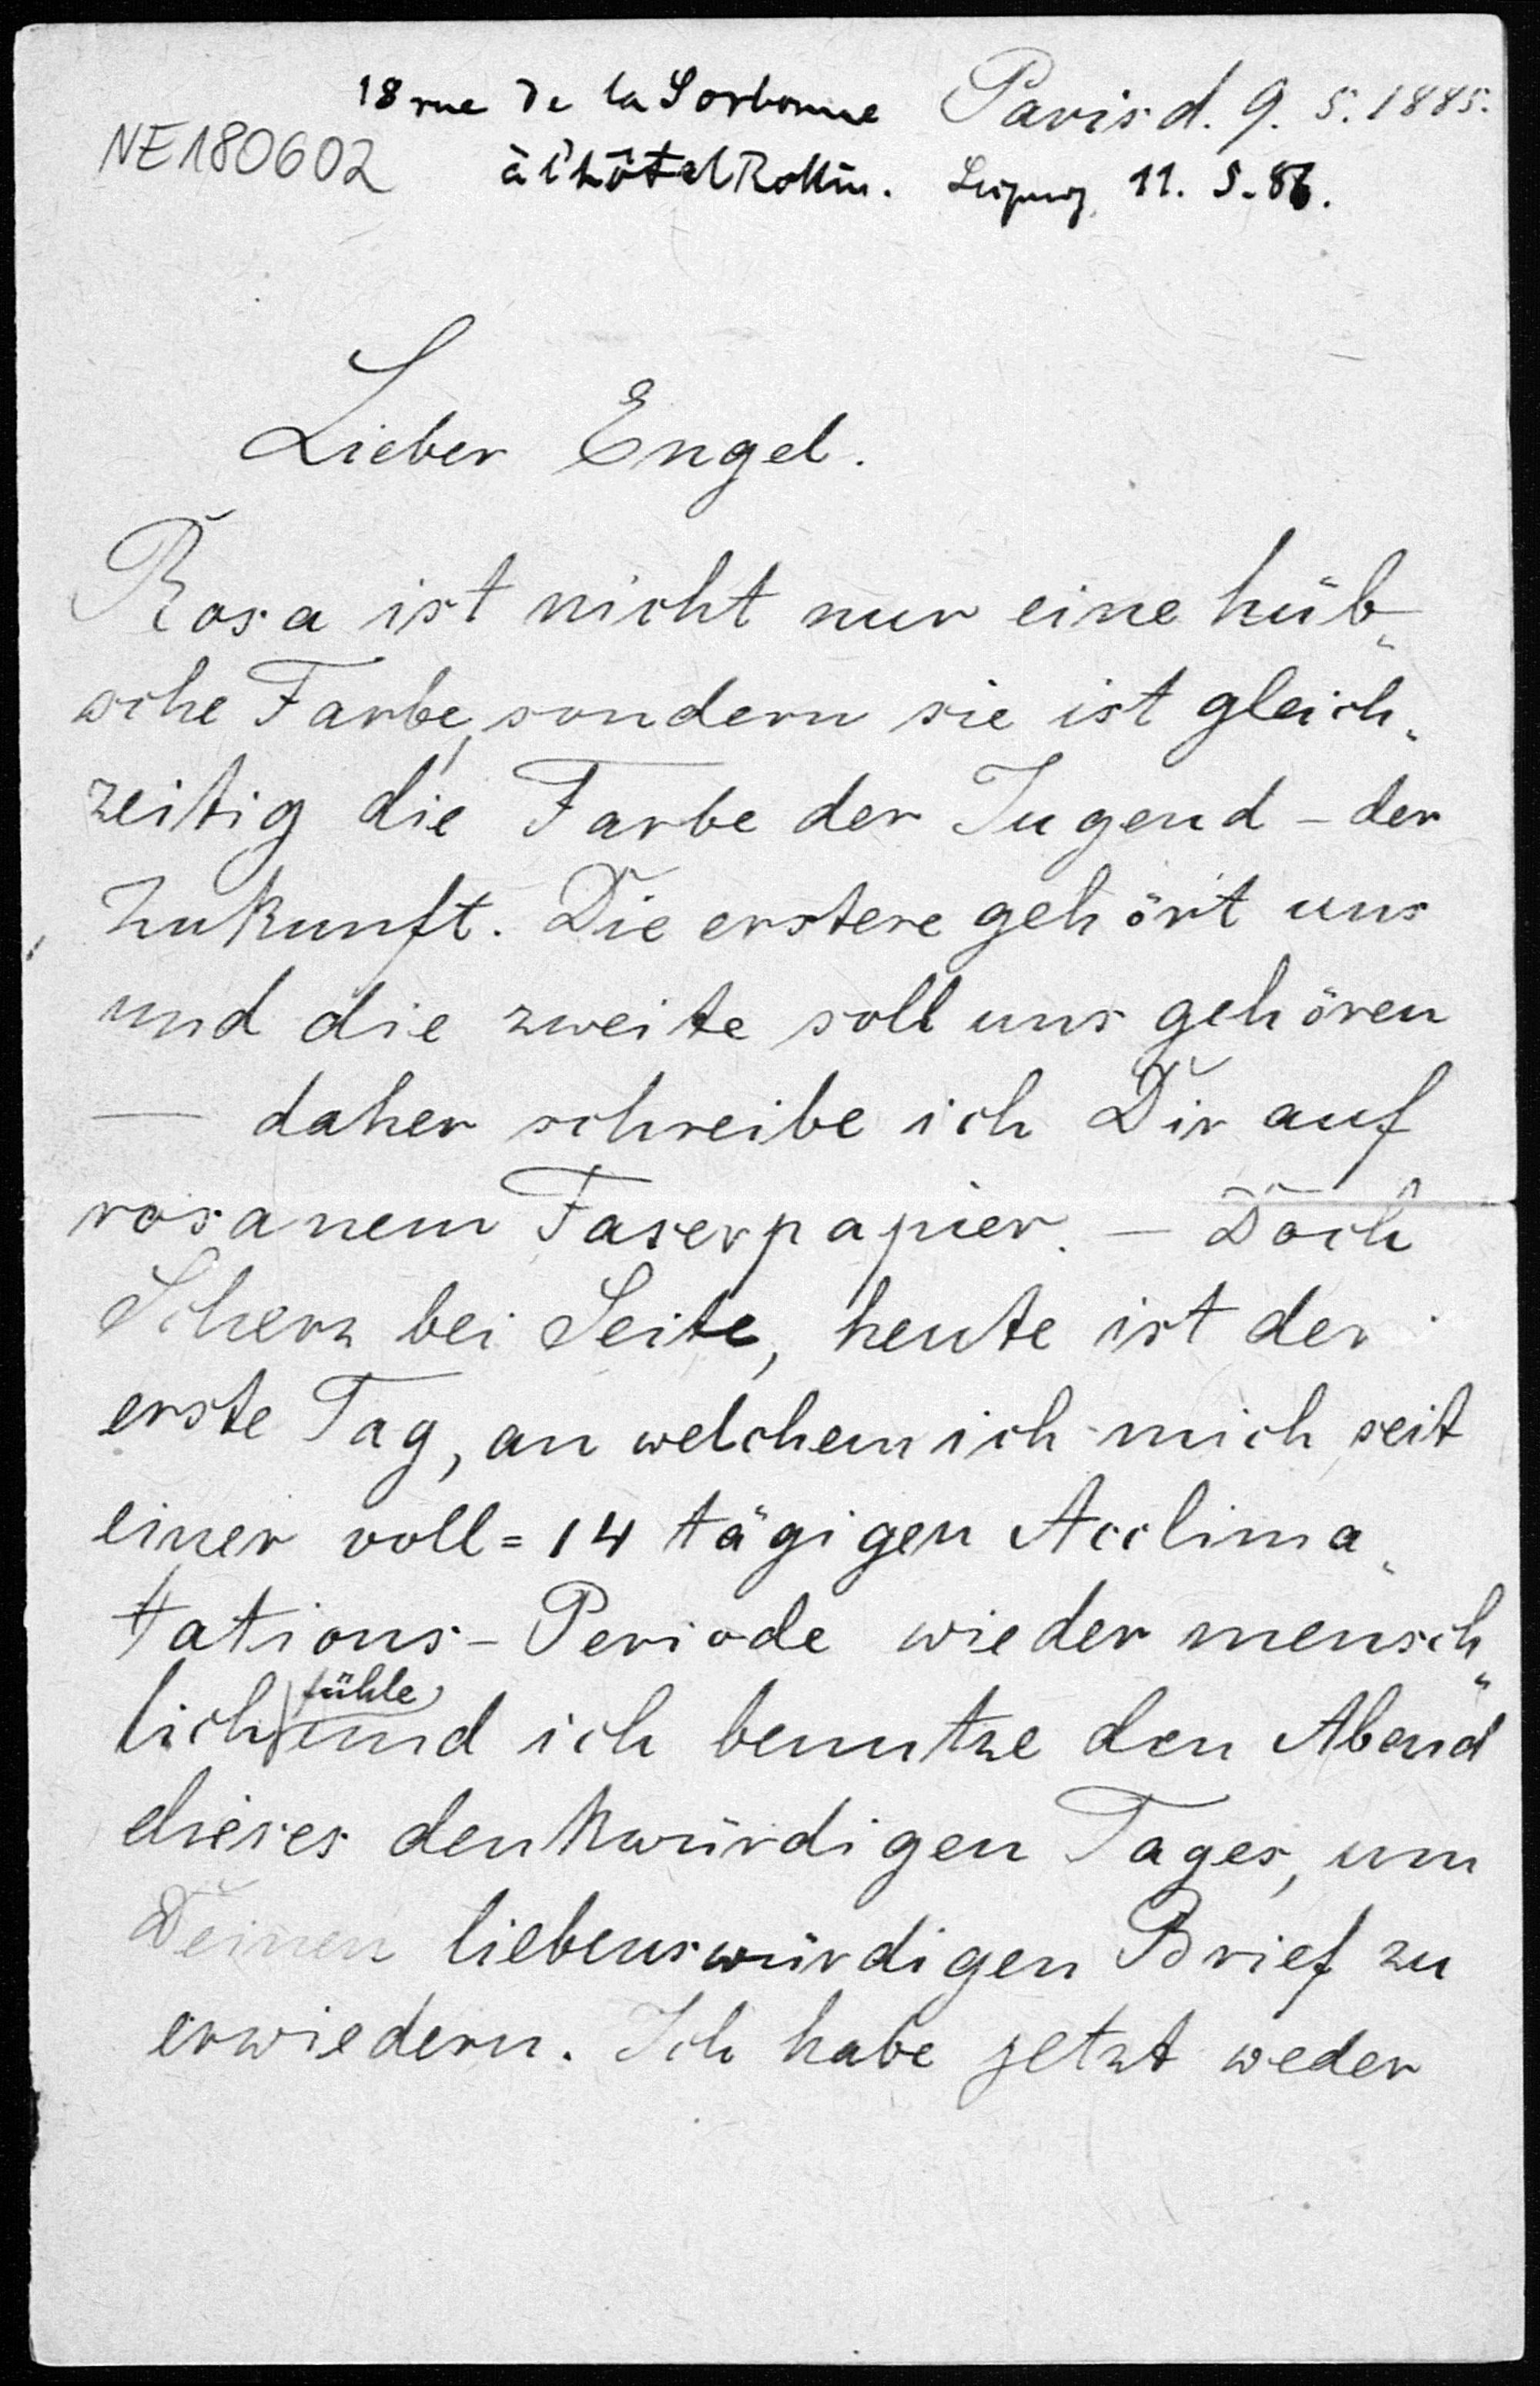 18 rue de la Sorbonne Paris d. 9. 5. 1885.
NE180602 à l'hôtel Rollin. Leipzig, 11. 5. 86.
Lieber Engel.
Rosa ist nicht nur eine hüb„
sche Farbe, sondern sie ist gleich„
zeitig die Farbe der Jugend – der
Zukunft. Die erstere gehört uns
und die zweite soll uns gehören
— daher schreibe ich Dir auf
rosanem Faserpapier. — Doch
Scherz bei Seite, heute ist der
erste Tag, an welchem ich mich seit
einer voll=14 tägigen Acclima„
tations-Periode wieder mensch„
lich fühle und ich benutze den Abend
dieses denkwürdigen Tages, um
Deinen liebenswürdigen Brief zu
erwiedern. Ich habe jetzt weder